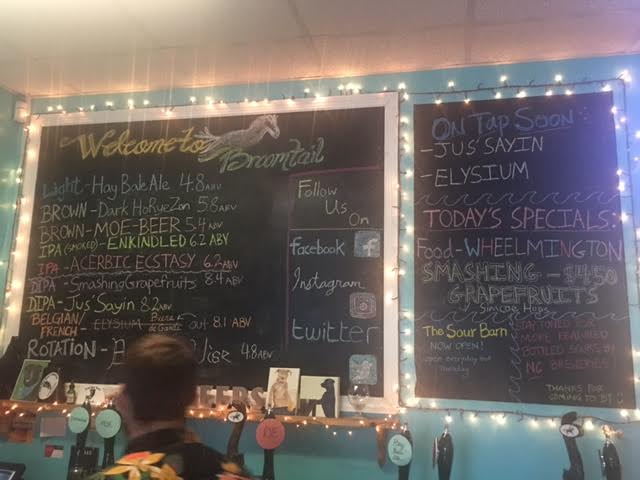 Welcome to
Broomtail
Light - Hay Bale Ale 4.8 ABV
BROWN - Dark HoRyeZon 5.8 ABV
BROWN - MOE-BEER 5.4 ABV
IPA (SMOKED) - ENKINDLED 6.2 ABV
IPA - ACERBIC ECSTASY 6.2 ABV
DIPA - SmashingGrapefruits 8.4 ABV
DIPA - Jus' Sayin 8.2 ABV
BELGIAN/
FRENCH - ELYSIUM Biere de Garde out 8.1 ABV
ROTATION - 4.8 ABV
Follow
Us
On
facebook
Instagram
twitter
ON TAP SOON:
- JUS' SAYIN
- ELYSIUM
TODAY'S SPECIALS:
Food - WHEELMINGTON
SMASHING - $4.50
GRAPEFRUITS
The Sour Barn
NOW OPEN!
open everyday but
Tuesday
STAY TUNED FOR
MORE FEATURED
BOTTLED SOURS BY
NC BREWERIES!
THANKS FOR
COMING TO BT